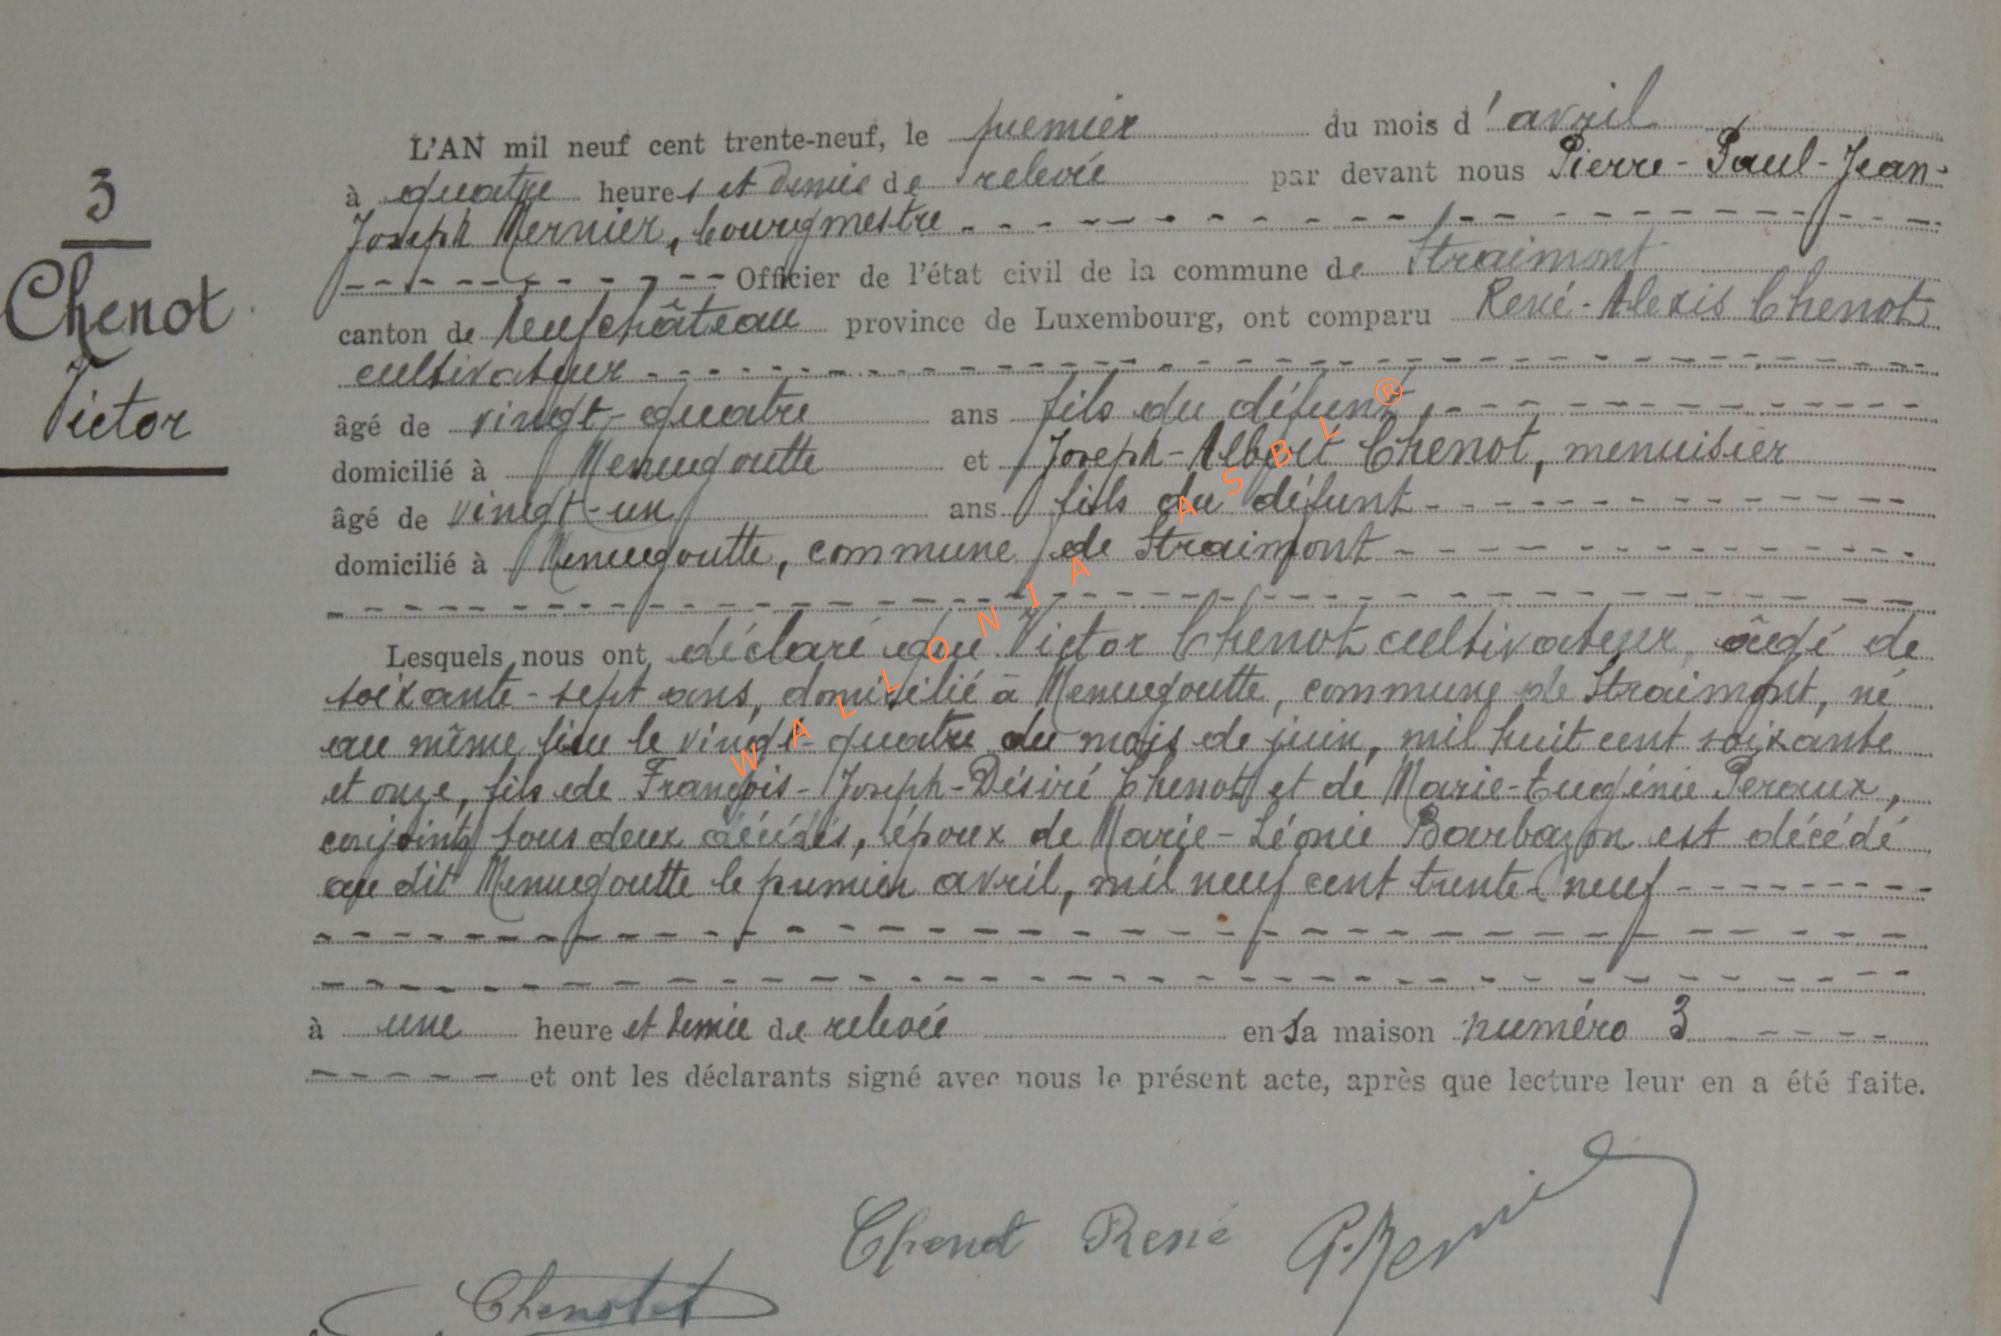 L'AN mil neuf cent trente-neuf, le premier du mois d'avril
3
à quatre heures et demie de relevée par devant nous Pierre-Paul-Jean-
Joseph Mernier, bourgmestre
Officier de l'état civil de la commune de Straimont
Chenot
Victor
canton de Neufchâteau province de Luxembourg, ont comparu René-Alexis Chenot
cultivateur
âgé de vingt-quatre ans fils du défunt
domicilié à Menugoutte et Joseph-Albert Chenot, menuisier
âgé de vingt-un ans fils du défunt
domicilié à Menugoutte, commune de Straimont
Lesquels nous ont déclaré que Victor Chenot cultivateur, âgé de
soixante-sept ans, domicilié à Menugoutte, commune de Straimont, né
au même lieu le vingt-quatre du mois de juin, mil huit cent soixante
et onze, fils de François-Joseph-Désiré Chenot et de Marie-Eugénie Peraux,
conjoints tous deux décédés, époux de Marie-Léonie Barbazon est décédé
au dit Menugoutte le premier avril, mil neuf cent trente-neuf
à une heure et demie de relevée en sa maison numéro 3
et ont les déclarants signé avec nous le présent acte, après que lecture leur en a été faite.
Chenot René P. Mernier
Chenot
WALLONIA ASBL®